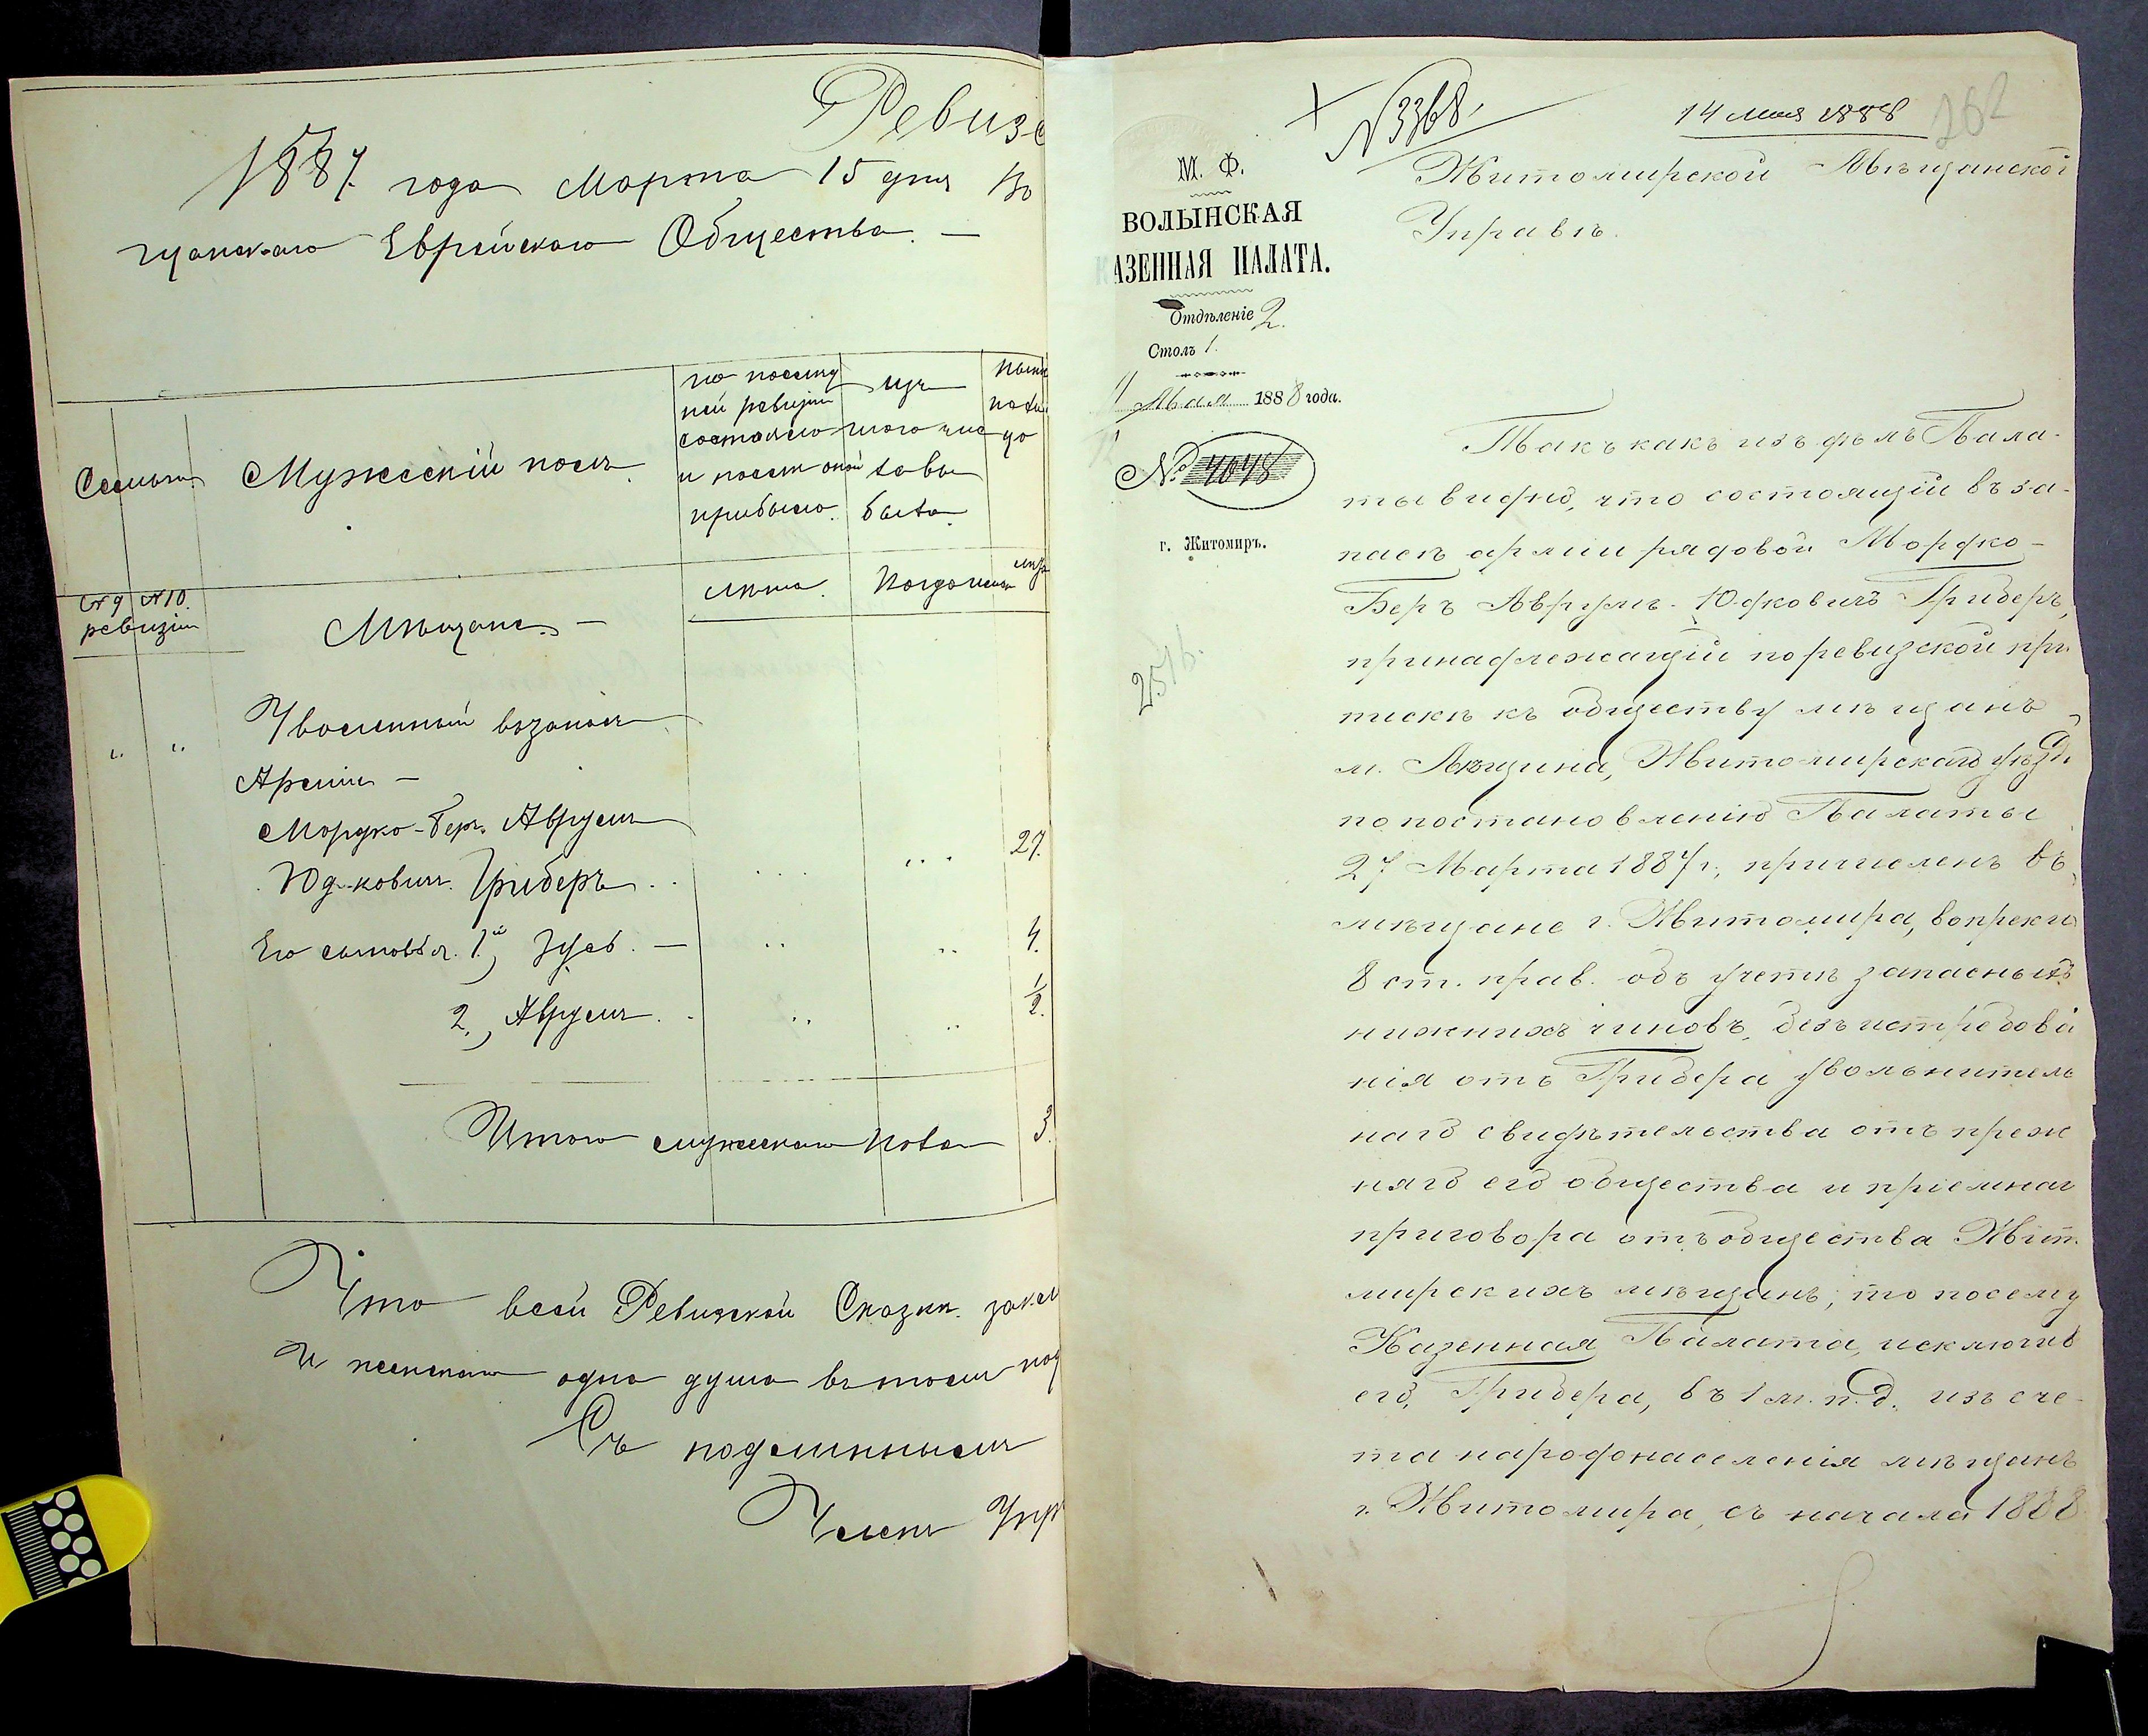 Ревизс
1887 года Марта 15 дня Во
щанскаго Еврейскаго Общества. —
Семьи
Мужескій полъ.
по послед
ней ревизіи
состояло
и после оной
прибыло.
изъ
того чис
ла вы
было.
ныне
на ли
цо
№ 9 № 10.
ревизіи
Мещане. —
лета.
Когда именно
лета
„ „ Уволенный в запасъ
Арміи —
Мордко-Беръ Аврумъ
Юдковичъ Гриберъ . . . . . . . . 27.
Его сыновья. 1й, Зусь. — „ „ 4.
2, Аврумъ. . „ „ 1/2.
Итого мужескаго пола 3.
Что всей Ревизской Сказки
и женскаго одна душа в томъ
Съ подлиннымъ
Членъ Упр
№ 3368.
14 мая 1888
262
М. Ф.
ВОЛЫНСКАЯ
КАЗЕННАЯ ПАЛАТА.
Отдѣленіе 2.
Столъ 1.
11 Мая 1888 года.
№ 4048
г. Житомиръ.
2516.
Житомирской Мѣщанской
Управѣ.
Такъ какъ изъ дѣлъ Пала-
ты видно, что состоящій въ за-
пасѣ арміи рядовой Мордко-
Беръ Аврумъ-Юдковичъ Гриберъ,
принадлежащій по ревизской при
пискѣ къ обществу мѣщанъ
м. Лещина, Житомирскаго уѣзда
по постановленію Палаты
27 Марта 1887 г., причисленъ въ
мѣщане г. Житомира, вопреки
8 ст. прав. объ учетѣ запасныхъ
нижнихъ чиновъ, безъ истребова
нія отъ Грибера увольнитель
наго свидѣтельства отъ преж
няго его общества и пріемнаг
приговора отъ общества Жит
мирскихъ мѣщанъ; то посему
Казенная Палата, исключив
его, Грибера, въ 1 м. п. д. изъ сче-
та народонаселенія мѣщанъ
г. Житомира, съ начала 1888